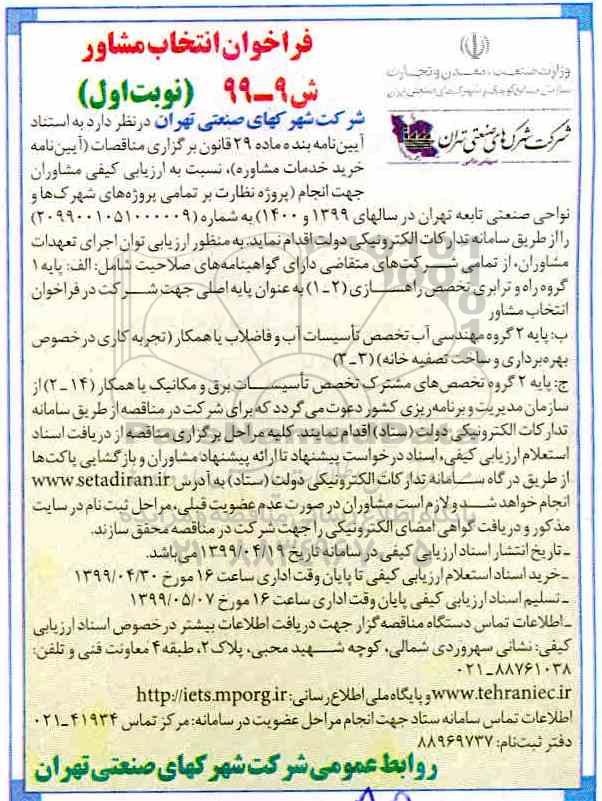 فراخوان انتخاب مشاور
ش ۹-۹۹ (نوبت اول)
وزارت صنعت، معدن و تجارت
سازمان صنایع کوچک و شهرکهای صنعتی ایران
شرکت شهرک های صنعتی تهران
شرکت شهرکهای صنعتی تهران در نظر دارد به استناد
آیین‌نامه بند ه ماده ۲۹ قانون برگزاری مناقصات (آیین‌نامه
خرید خدمات مشاوره)، نسبت به ارزیابی کیفی مشاوران
جهت انجام (پروژه نظارت بر تمامی پروژه‌های شهرک‌ها و
نواحی صنعتی تابعه تهران در سالهای ۱۳۹۹ و ۱۴۰۰) به شماره (۲۰۹۹۰۰۱۰۵۱۰۰۰۰۰۹)
را از طریق سامانه تدارکات الکترونیکی دولت اقدام نماید. به منظور ارزیابی توان اجرای تعهدات
مشاوران، از تمامی شرکت‌های متقاضی دارای گواهینامه‌های صلاحیت شامل: الف: پایه ۱
گروه راه و ترابری تخصص راهسازی (۲-۱) به عنوان پایه اصلی جهت شرکت در فراخوان
انتخاب مشاور
ب: پایه ۲ گروه مهندسی آب تخصص تأسیسات آب و فاضلاب یا همکار (تجربه کاری در خصوص
بهره‌برداری و ساخت تصفیه خانه) (۳-۲)
ج: پایه ۲ گروه تخصص‌های مشترک تخصص تأسیسات برق و مکانیک یا همکار (۱۴-۲) از
سازمان مدیریت و برنامه‌ریزی کشور دعوت می گردد که برای شرکت در مناقصه از طریق سامانه
تدارکات الکترونیکی دولت (ستاد) اقدام نمایند. کلیه مراحل برگزاری مناقصه از دریافت اسناد
استعلام ارزیابی کیفی، اسناد درخواست پیشنهاد تا ارائه پیشنهاد مشاوران و بازگشایی پاکت‌ها
از طریق درگاه سامانه تدارکات الکترونیکی دولت (ستاد) به آدرس www.setadiran.ir
انجام خواهد شد و لازم است مشاوران در صورت عدم عضویت قبلی، مراحل ثبت نام در سایت
مذکور و دریافت گواهی امضای الکترونیکی را جهت شرکت در مناقصه محقق سازند.
ـ تاریخ انتشار اسناد ارزیابی کیفی در سامانه تاریخ ۱۳۹۹/۰۴/۱۹ می باشد.
ـ خرید اسناد استعلام ارزیابی کیفی تا پایان وقت اداری ساعت ۱۶ مورخ ۱۳۹۹/۰۴/۳۰
ـ تسلیم اسناد ارزیابی کیفی پایان وقت اداری ساعت ۱۶ مورخ ۱۳۹۹/۰۵/۰۷
ـ اطلاعات تماس دستگاه مناقصه گزار جهت دریافت اطلاعات بیشتر در خصوص اسناد ارزیابی
کیفی: نشانی سهروردی شمالی، کوچه شهید محبی، پلاک ۲، طبقه ۴ معاونت فنی و تلفن:
۰۲۱-۸۸۷۶۱۰۳۸
www.tehraniec.ir و پایگاه ملی اطلاع رسانی: http://iets.mporg.ir
اطلاعات تماس سامانه ستاد جهت انجام مراحل عضویت در سامانه: مرکز تماس ۴۱۹۳۴-۰۲۱
دفتر ثبت نام: ۸۸۹۶۹۷۳۷
روابط عمومی شرکت شهرکهای صنعتی تهران